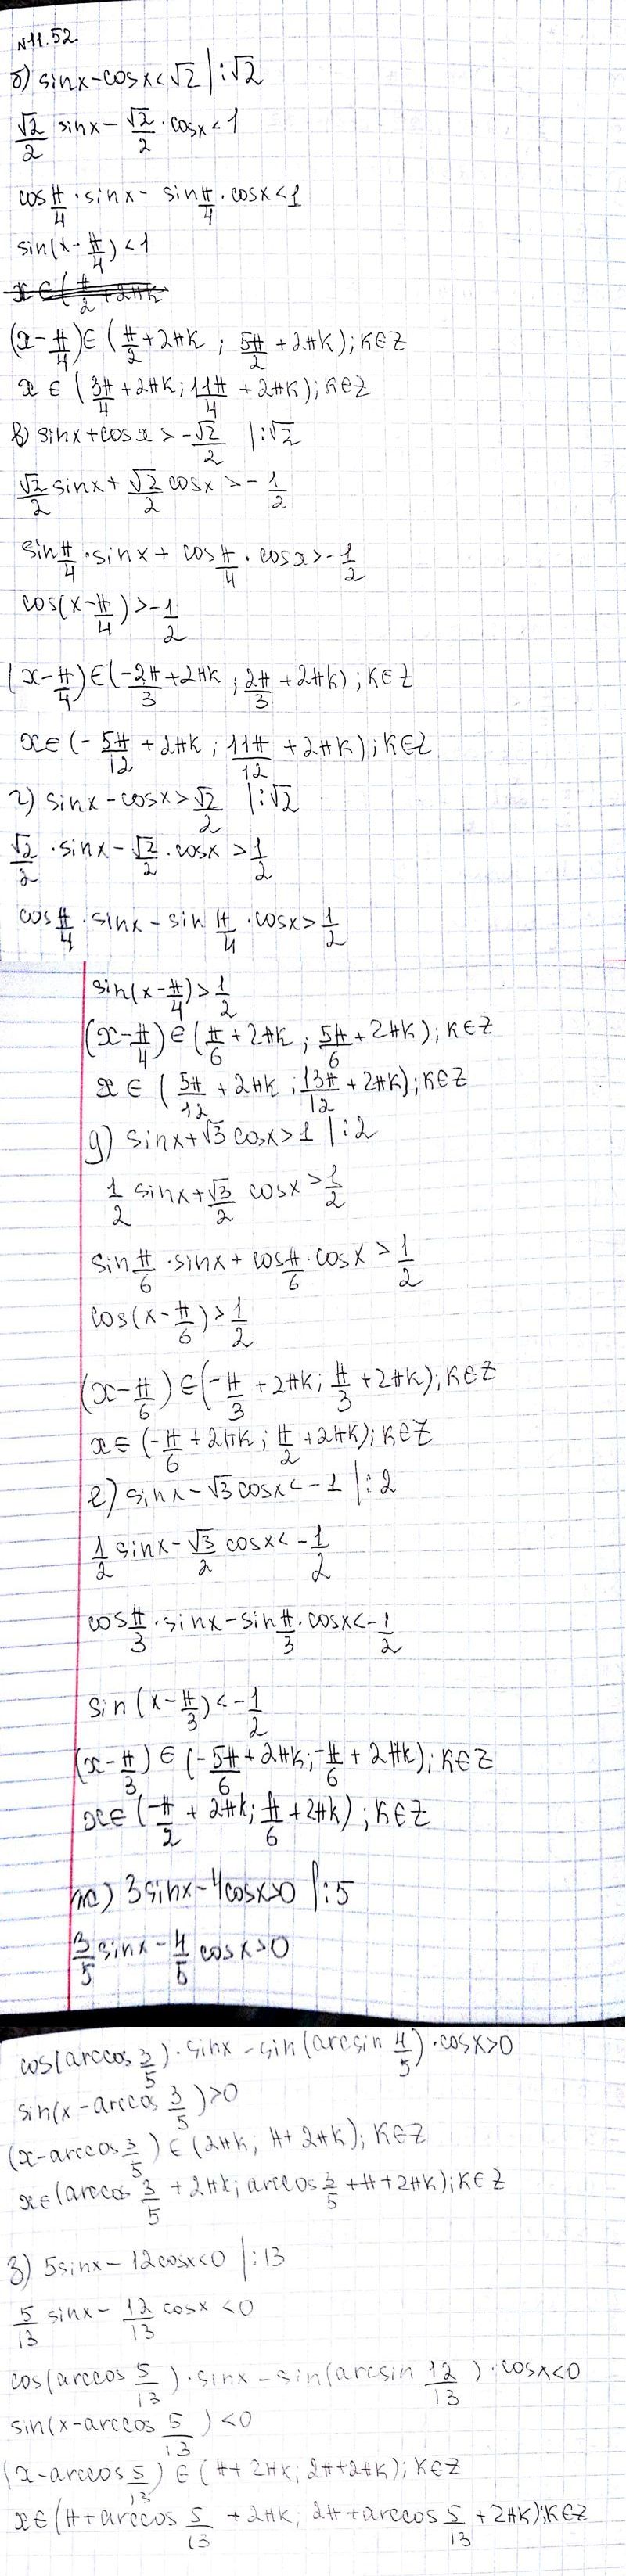 N11.52
б) sinx-cosx<√2 |:√2
√2/2 sinx-√2/2·cosx<1
cos π/4·sinx-sin π/4·cosx<1
sin(x-π/4)<1
(x-π/4)∈(π/2+2πk; 5π/2+2πk);k∈Z
x∈(3π/4+2πk;11π/4+2πk);k∈Z
в) sinx+cosx>-√2/2 |:√2
√2/2 sinx+√2/2 cosx>-1/2
sin π/4·sinx+cos π/4·cosx>-1/2
cos(x-π/4)>-1/2
(x-π/4)∈(-2π/3+2πk;2π/3+2πk);k∈Z
x∈(-5π/12+2πk;11π/12+2πk);k∈Z
г) sinx-cosx>√2/2 |:√2
√2/2·sinx-√2/2·cosx>1/2
cos π/4·sinx-sin π/4·cosx>1/2
sin(x-π/4)>1/2
(x-π/4)∈(π/6+2πk;5π/6+2πk);k∈Z
x∈(5π/12+2πk;13π/12+2πk);k∈Z
g) sinx+√3cosx>1 |:2
1/2 sinx+√3/2 cosx>1/2
sin π/6·sinx+cos π/6·cosx>1/2
cos(x-π/6)>1/2
(x-π/6)∈(-π/3+2πk;π/3+2πk);k∈Z
x∈(-π/6+2πk;π/2+2πk);k∈Z
е) sinx-√3cosx<-1 |:2
1/2 sinx-√3/2 cosx<-1/2
cos π/3·sinx-sin π/3·cosx<-1/2
sin(x-π/3)<-1/2
(x-π/3)∈(-5π/6+2πk;-π/6+2πk);k∈Z
x∈(-π/2+2πk;π/6+2πk);k∈Z
ж) 3sinx-4cosx>0 |:5
3/5 sinx-4/5 cosx>0
cos(arccos 3/5)·sinx-sin(arcsin 4/5)·cosx>0
sin(x-arccos 3/5)>0
(x-arccos 3/5)∈(2πk;π+2πk);k∈Z
x∈(arccos 3/5+2πk;arccos 3/5+π+2πk);k∈Z
з) 5sinx-12cosx<0 |:13
5/13 sinx-12/13 cosx<0
cos(arccos 5/13)·sinx-sin(arcsin 12/13)·cosx<0
sin(x-arccos 5/13)<0
(x-arccos 5/13)∈(π+2πk;2π+2πk);k∈Z
x∈(π+arccos 5/13+2πk;2π+arccos 5/13+2πk);k∈Z